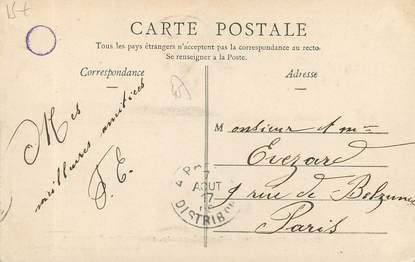 15+
CARTE POSTALE
Tous les pays étrangers n'acceptent pas la correspondance au recto-
Se renseigner à la Poste.
Correspondance
Adresse
Mes
meilleures amitiés
Monsieur & Mme
Evezard
9 rue de Belzunce
Paris
7
AOUT
17
DISTRIBON